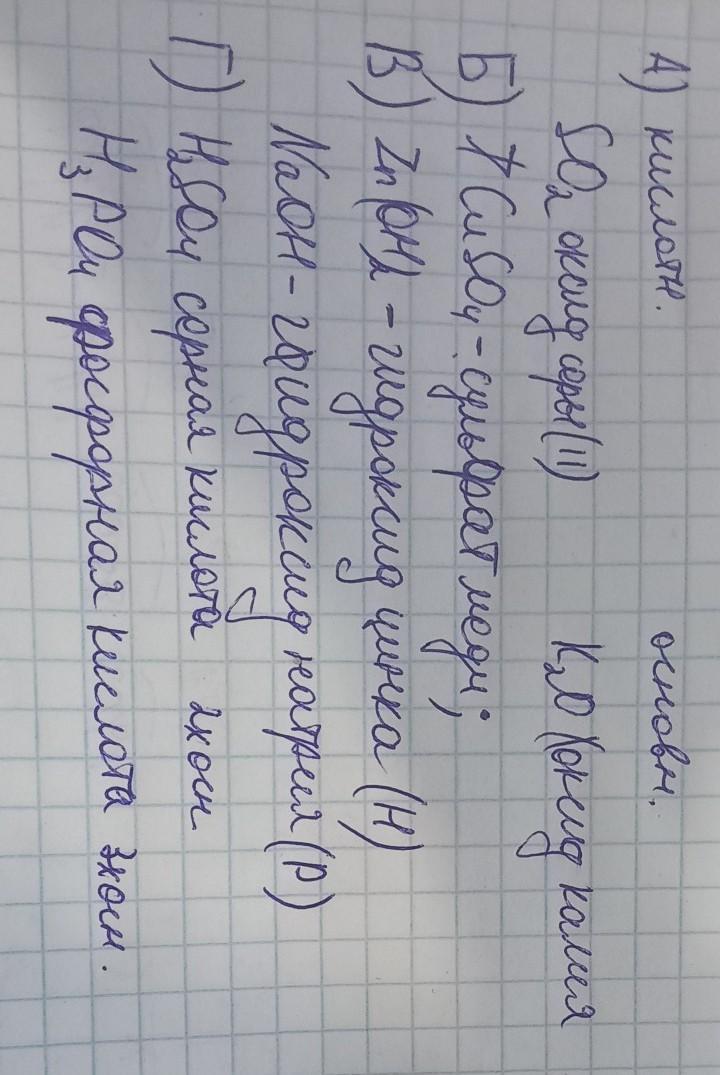 А) кислотн. основн.
SO₂ оксид серы (II) K₂O (оксид калия
Б) CuSO₄ - сульфат меди;
В) Zn(OH)₂ - гидроксид цинка (Н)
NaOH - гидроксид натрия (Р)
Г) H₂SO₄ серная кислота 2хосн
H₃PO₄ фосфорная кислота 3хосн.